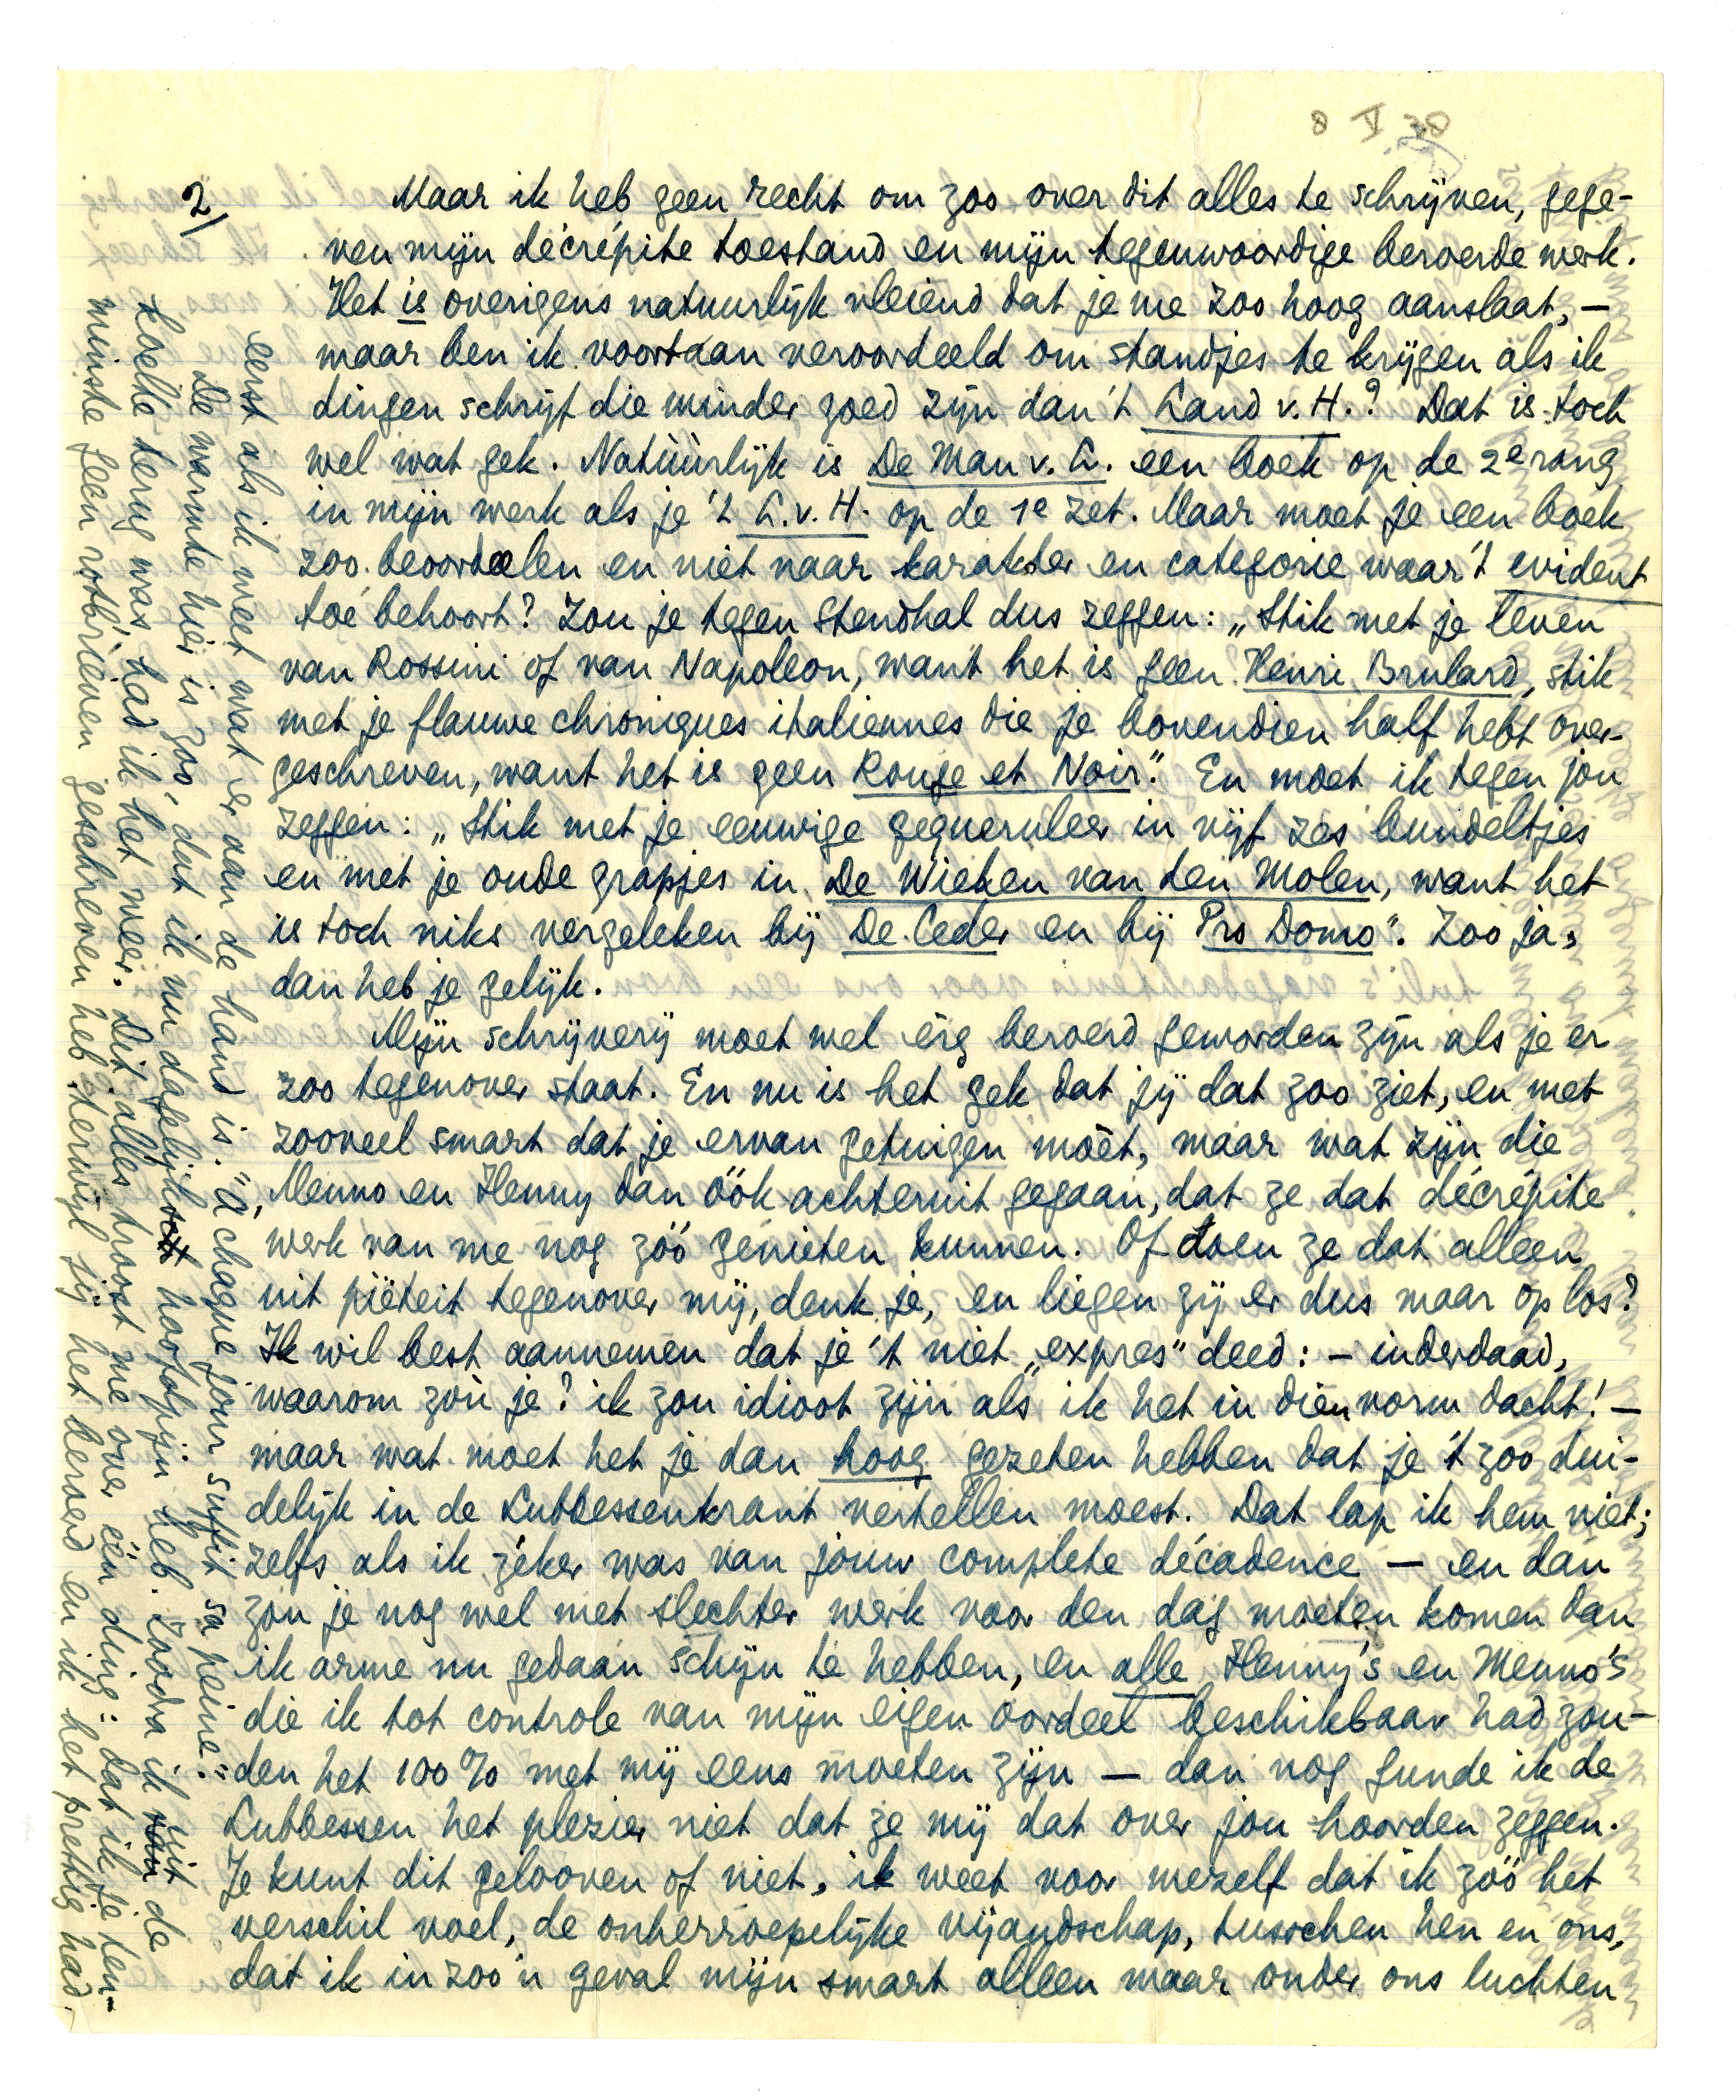 8 V 38
2/
Maar ik heb geen recht om zoo over dit alles te schrijven, gege-
ven mijn décrépite toestand en mijn tegenwoordige beroerde werk.
Het is overigens natuurlijk vleiend dat je me zoo hoog aanslaat, —
maar ben ik voortaan veroordeeld om standjes te krijgen als ik
dingen schrijf die minder goed zijn dan 't Land v. H.? Dat is toch
wel wat gek. Natùùrlijk is De Man v. L. een boek op de 2e rang
in mijn werk als je 't L. v. H. op de 1e zet. Maar moet je een boek
zoo beoordeelen en niet naar karakter en categorie waar 't evident
toe behoort? Zou je tegen Stendhal dus zeggen: „Stik met je leven
van Rossini of van Napoleon, want het is geen Henri Brulard, stik
met je flauwe chroniques italiennes die je bovendien half hebt over-
geschreven, want het is geen Rouge et Noir." En moet ik tegen jou
zeggen: „Stik met je eeuwige gequeruleer in vijf zes bundeltjes
en met je oude grapjes in De Wieken van den Molen, want het
is toch niks vergeleken bij De Ceder en bij Pro Domo". Zoo ja,
dan heb je gelijk.
Mijn schrijverij moet wel érg beroerd geworden zijn als je er
zoo tegenover staat. En nu is het gek dat jij dat zoo ziet, en met
zooveel smart dat je ervan getuigen moèt, maar wat zijn die
Menno en Henny dan óók achteruit gegaan, dat ze dat décrépite
werk van me nog zóó genieten kunnen. Of doen ze dat alleen
uit piëteit tegenover mij, denk je, en liegen zij er dus maar op los?
Ik wil best aannemen dat je 't niet „expres" deed: — inderdaad,
waarom zou je? ik zou idioot zijn als ik het in dien vorm dacht! —
maar wat moet het je dan hoog gezeten hebben dat je 't zoo dui-
delijk in de Lubbessenkrant vertellen moest. Dat lap ik hem niet;
zelfs als ik zéker was van jouw complete décadence — en dan
zou je nog wel met slechter werk voor den dag moeten komen dan
ik arme nu gedaan schijn te hebben, en alle Henny's en Menno's
die ik tot controle van mijn eigen oordeel beschikbaar had zou-
den het 100% met mij eens moeten zijn — dan nog gunde ik de
Lubbessen het plezier niet dat ze mij dat over jou hoorden zeggen.
Je kunt dit gelooven of niet, ik weet voor mezelf dat ik zóó het
verschil voel, de onherroepelijke vijandschap, tusschen hen en ons,
dat ik in zoo'n geval mijn smart alleen maar onder ons luchten
eerst als ik weet wat er aan de hand is. "A chaque jour suffit sa peine."
De warmte hier is zoo, dat ik nu dagelijksch hoofdpijn heb. Zoodra ik uit de
koelte terug was, had ik het weer. Dit alles troost me over één ding: dat ik je ten-
minste geen rotbrieven geschreven heb terwijl jij het beroerd en ik het prettig had.